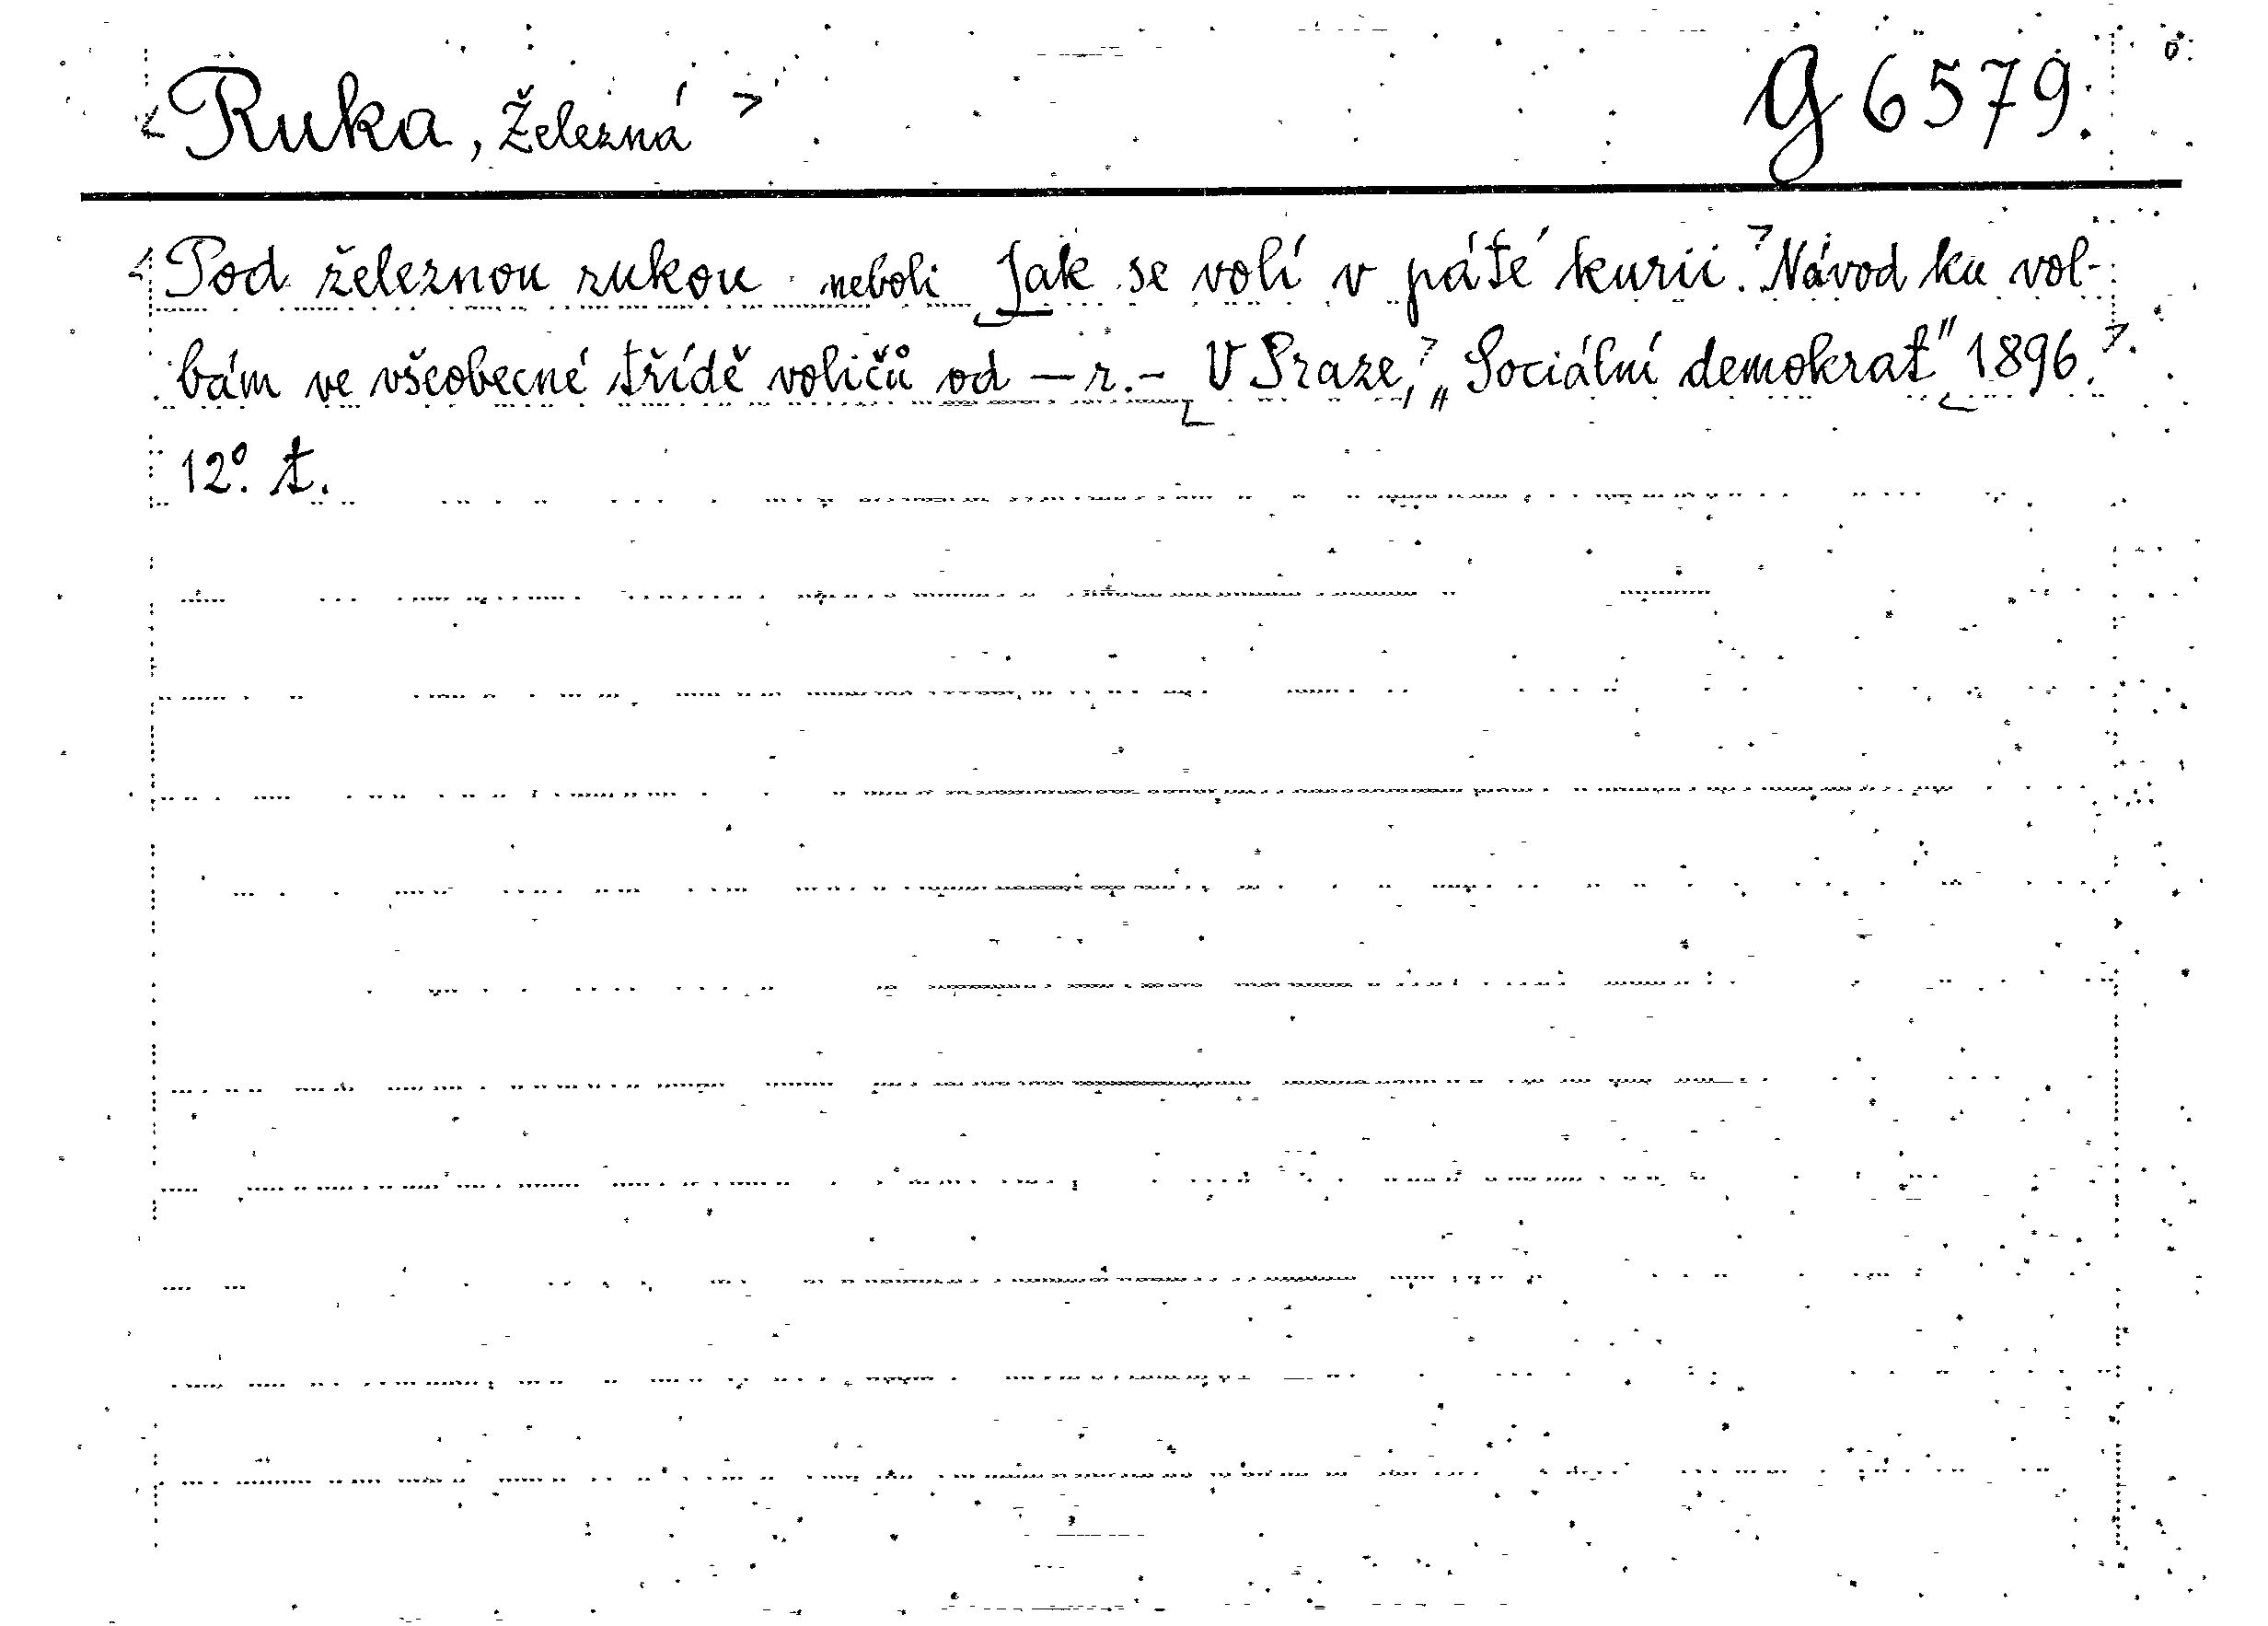 Ruka, Železná G 6579.
Pod železnou rukou neboli Jak se volí v páté kurii. Návod ku vol-
bám ve všeobecné třídě voličů od — r. - V Praze, „Sociální demokrat" 1896.
12°. t.